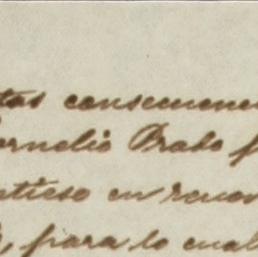 tas consecuenc
ornelio Prado p
atieso en renov
, para lo cual